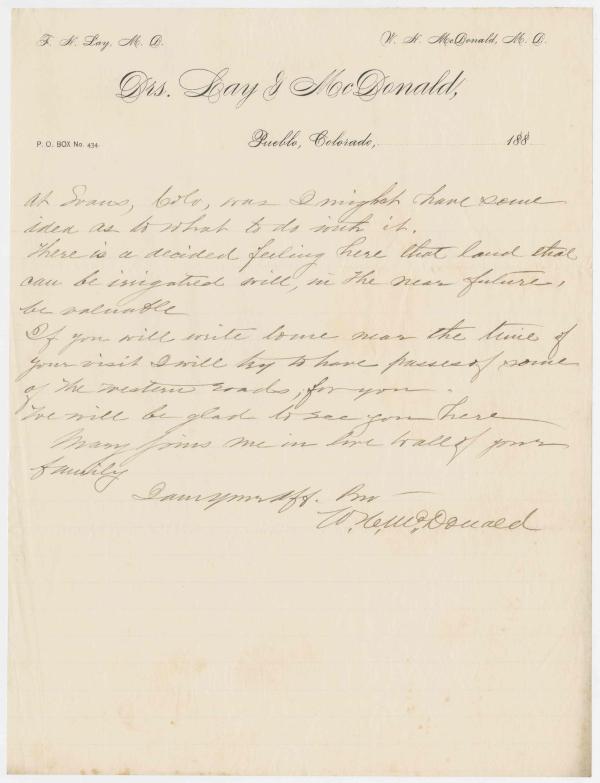 F. K. Lay, M. D.
W. H. McDonald, M. D.
Drs. Lay & McDonald,
P. O. BOX No. 434.
Pueblo, Colorado, 188
at Evans, Colo, was I might have some
idea as to what to do with it.
There is a decided feeling here that land that
can be irrigatied will, in the near future,
be valuable
If you will write to me near the time of
your visit I will try to have passes of some
of the western roads, for you.
We will be glad to see you here
Mary joins me in love to all of your
family
I am your aff. Bro -
W. H. McDonald